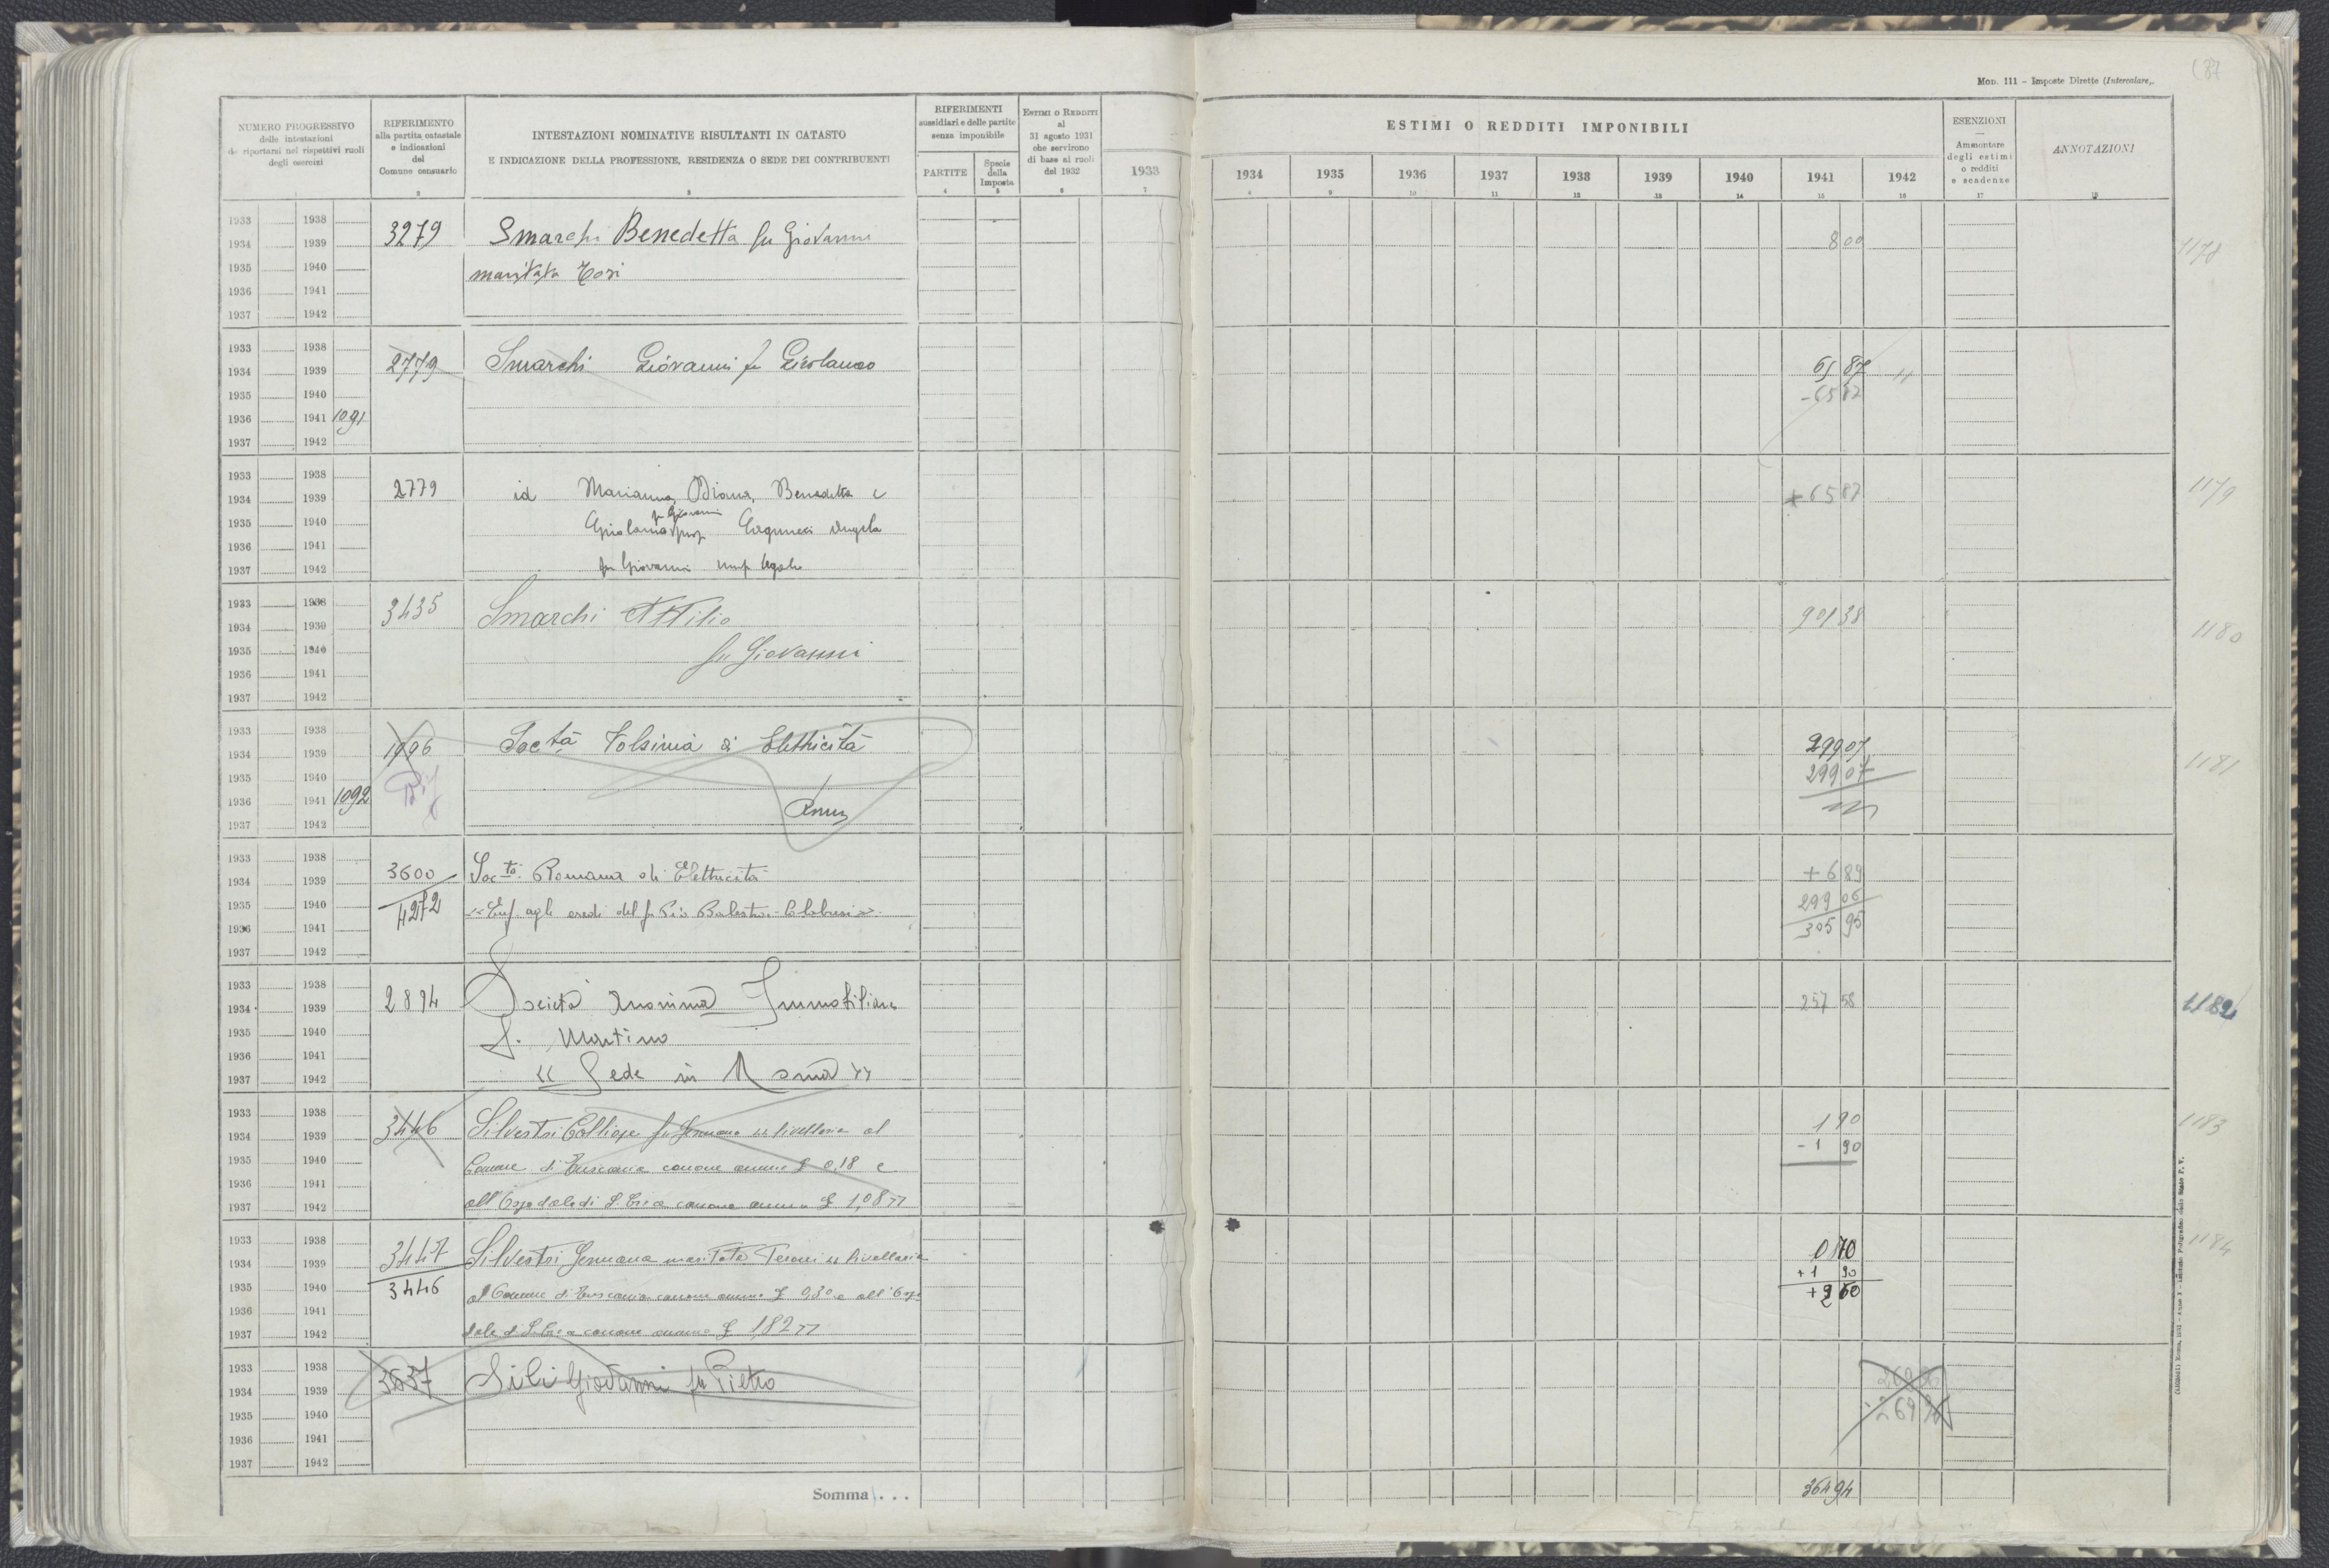 (87
MOD. 111 – Imposte Dirette (Intercalare).
NUMERO PROGRESSIVO
delle intestazioni
da riportarsi nei rispettivi ruoli
degli esercizi
RIFERIMENTO
alla partita catastale
e indicazioni
del
Comune censuario
2
INTESTAZIONI NOMINATIVE RISULTANTI IN CATASTO
E INDICAZIONE DELLA PROFESSIONE, RESIDENZA O SEDE DEI CONTRIBUENTI
3
RIFERIMENTI
sussidiari e delle partite
senza imponibile
PARTITE
4
Specie
della
Imposta
5
ESTIMI O REDDITI
al
31 agosto 1931
che servirono
di base ai ruoli
del 1932
6
1933
7
ESTIMI O REDDITI IMPONIBILI
1934 1935 1936 1937 1938 1939 1940 1941 1942
8 9 10 11 12 13 14 15 16
ESENZIONI
—
Ammontare
degli estimi
o redditi
e scadenze
17
ANNOTAZIONI
18
1933 1938
1934 1939 3279 Smarchi Benedetta fu Giovanni 800 1178
1935 1940 maritata Tosi
1936 1941
1937 1942
1933 1938
1934 1939 2779 Smarchi Giovanni fu Girolamo 65 87
1935 1940 -65 87
1936 1941 1091
1937 1942
1933 1938
1934 1939 2779 id Marianna, Diana, Benedetta e +65 87 1179
1935 1940 fu Giovanni
1936 1941 Angela
1937 1942 fu Giovanni usuf legale
1933 1938
1934 1939 3435 Smarchi Attilio 901 38 1180
1935 1940 fu Giovanni
1936 1941
1937 1942
1933 1938
1934 1939 1096 Soctà Volsinia di Elettricità 299 07 1181
1935 1940 299 07
1936 1941 1092
1937 1942
1933 1938
1934 1939 3600 Soctà Romana di Elettricità +6 89
1935 1940 4272 «Enf. agli eredi del fu Pio Balestra-Calabresi» 299 06
1936 1941 305 95
1937 1942
1933 1938
1934 1939 2894 Società Anonima Immobiliare 257 58 1182
1935 1940 S. Martino
1936 1941
1937 1942 « Sede in Roma »
1933 1938
1934 1939 3446 Silvestri Calliope fu Germano « livellaria al 1 90 1183
1935 1940 Comune di Tuscania canone annuo £ 0,18 e -1 90
1936 1941
1937 1942 all'Ospedale di S. Croce canone annuo £ 1,08 »
1933 1938
1934 1939 3447 Silvestri Germana maritata Teroni « livellaria 0 70 1184
1935 1940 3446 al Comune di Tuscania canone annuo £ 0,30 e all'Ospe +1 90
1936 1941 +2 60
1937 1942 dale di S. Croce canone annuo £ 1,82 »
1933 1938
1934 1939 3637 Sili Giovanni fu Pietro
1935 1940
1936 1941
1937 1942
Somma . . . 364 94